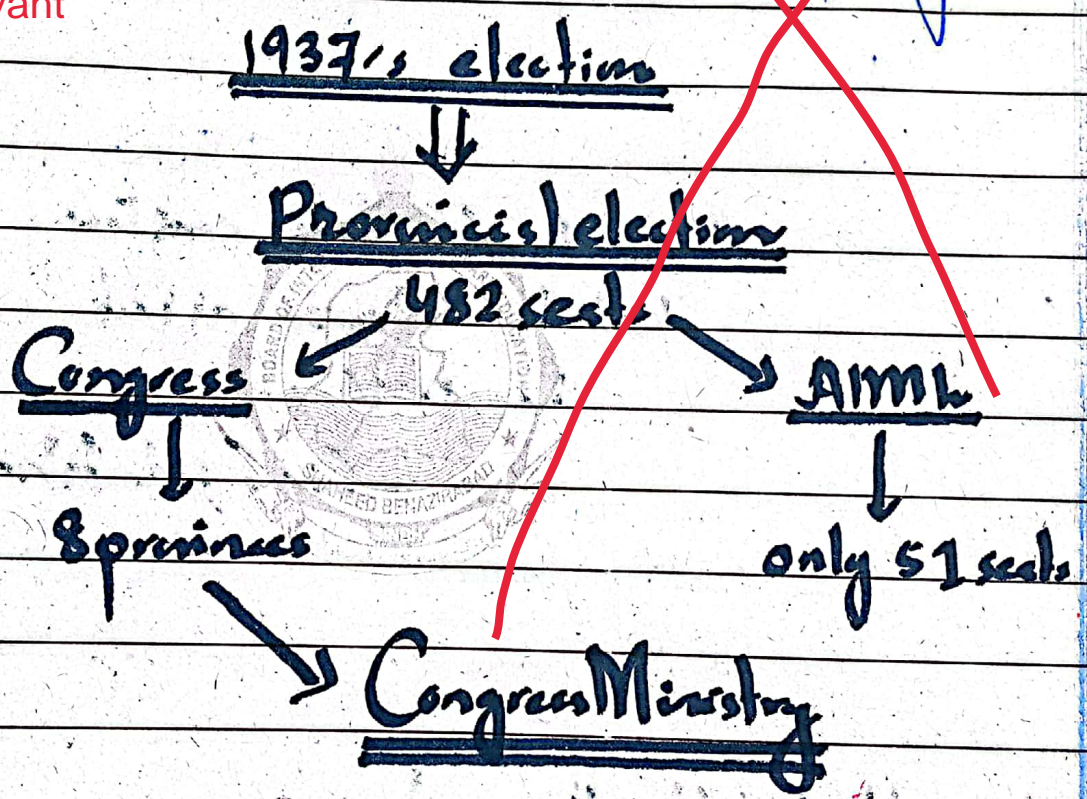 vant
1937's election
Provincial election
482 seats
Congress
AIML
8 provinces
only 51 seats
Congress Ministry
SHAHEED BENAZIRABAD